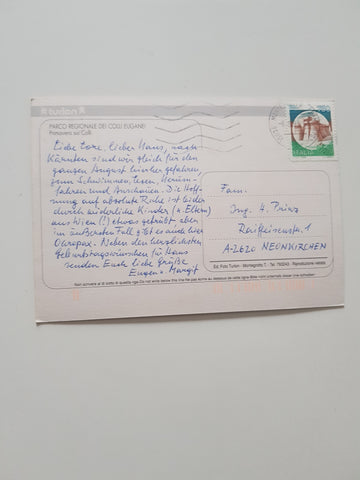 turlon
PARCO REGIONALE DEI COLLI EUGANEI
Primavera sui Colli
Liebe Lore, lieber Hans, nach
Kärnten sind wir gleich für den
ganzen August hierher gefahren,
zum Schwimmen, Lesen, Herum-
fahren und Anschauen. Die Hoff-
nung auf absolute Ruhe ist leider
durch widerliche Kinder (u. Eltern)
aus Wien (!) etwas getrübt aber
im äußersten Fall gibt es auch hier
Ohropax. Neben den herzlichsten
Geburtstagswünschen für Hans
senden Euch liebe Grüße
Eugen u. Margit
ITALIA
Fam.
Ing. H. Prinz
Raiffeisenstr. 1
A-2620 NEUNKIRCHEN
Ed. Foto Turlon - Montegrotto T. - Tel. 793243 - Riproduzione vietata
Non scrivere al di sotto di questa riga Do not write below this line Ne pas écrire au dessous de cette ligne Bitte nicht unterhalb dieser Linie schreiben